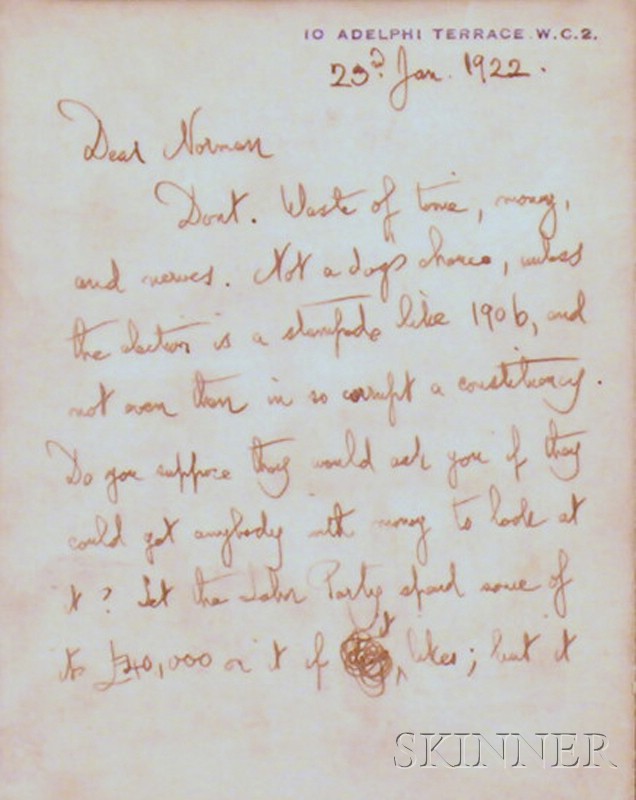 10 ADELPHI TERRACE. W.C.2.
23d Jan. 1922.
Dear Norman
Dont. Waste of time, money,
and nerves. Not a dog's chance, unless
the election is a stampede like 1906, and
not even then in so corrupt a constituency.
Do you suppose they would ask you if they
could get anybody with money to look at
it? Let the Labor Party spend some of
its £40,000 on it if it likes; but it
SKINNER